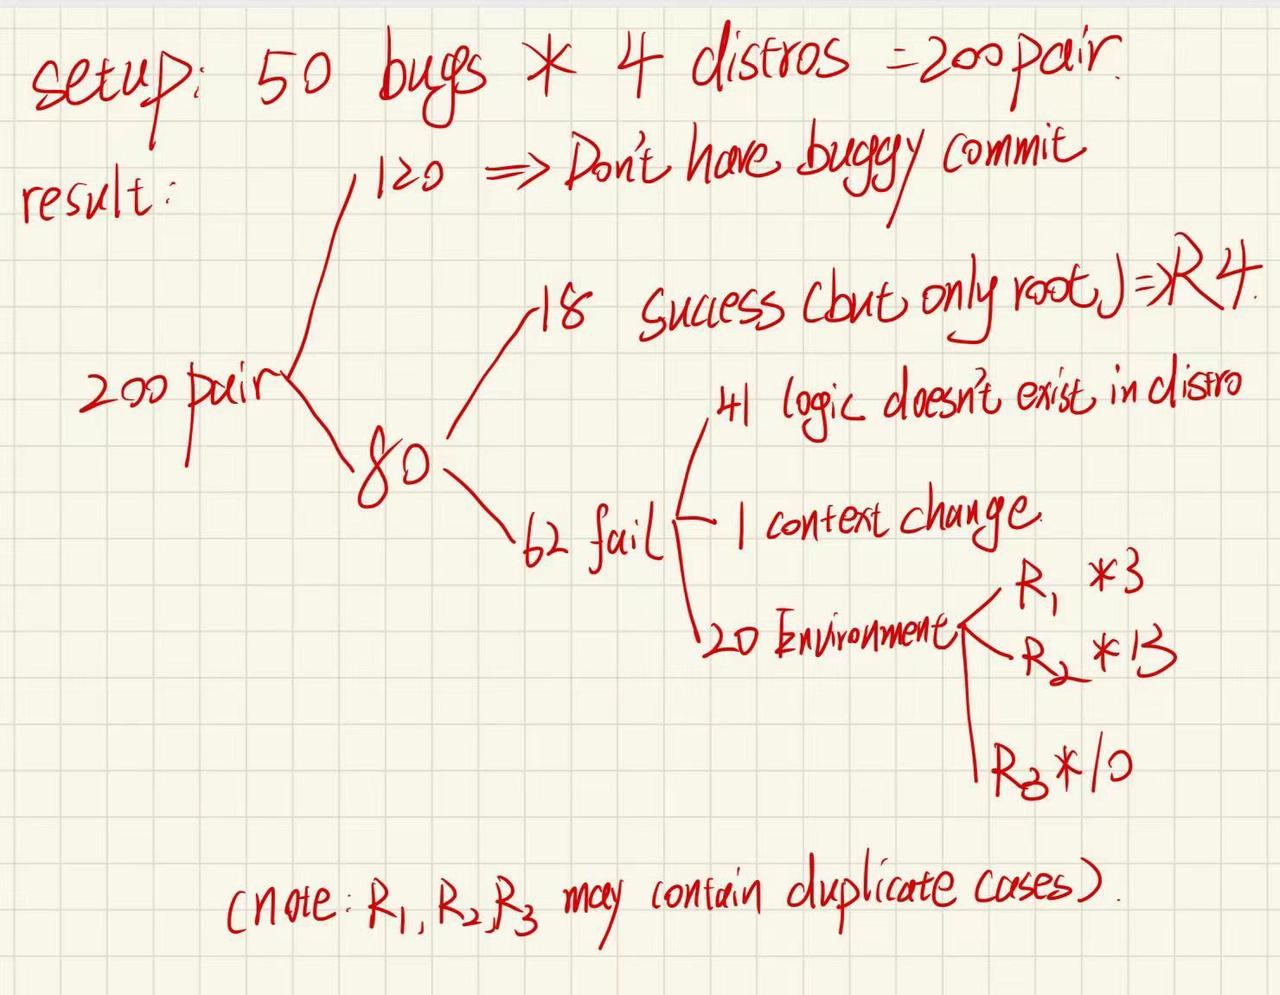 setup: 50 bugs * 4 distros = 200 pair.
result:
120 => Don't have buggy commit
18 success (but only root) => R4.
200 pair
41 logic doesn't exist in distro
80
1 context change.
62 fail
R1 *3
20 Environment
R2 *13
R3 *10
(note: R1, R2, R3 may contain duplicate cases).